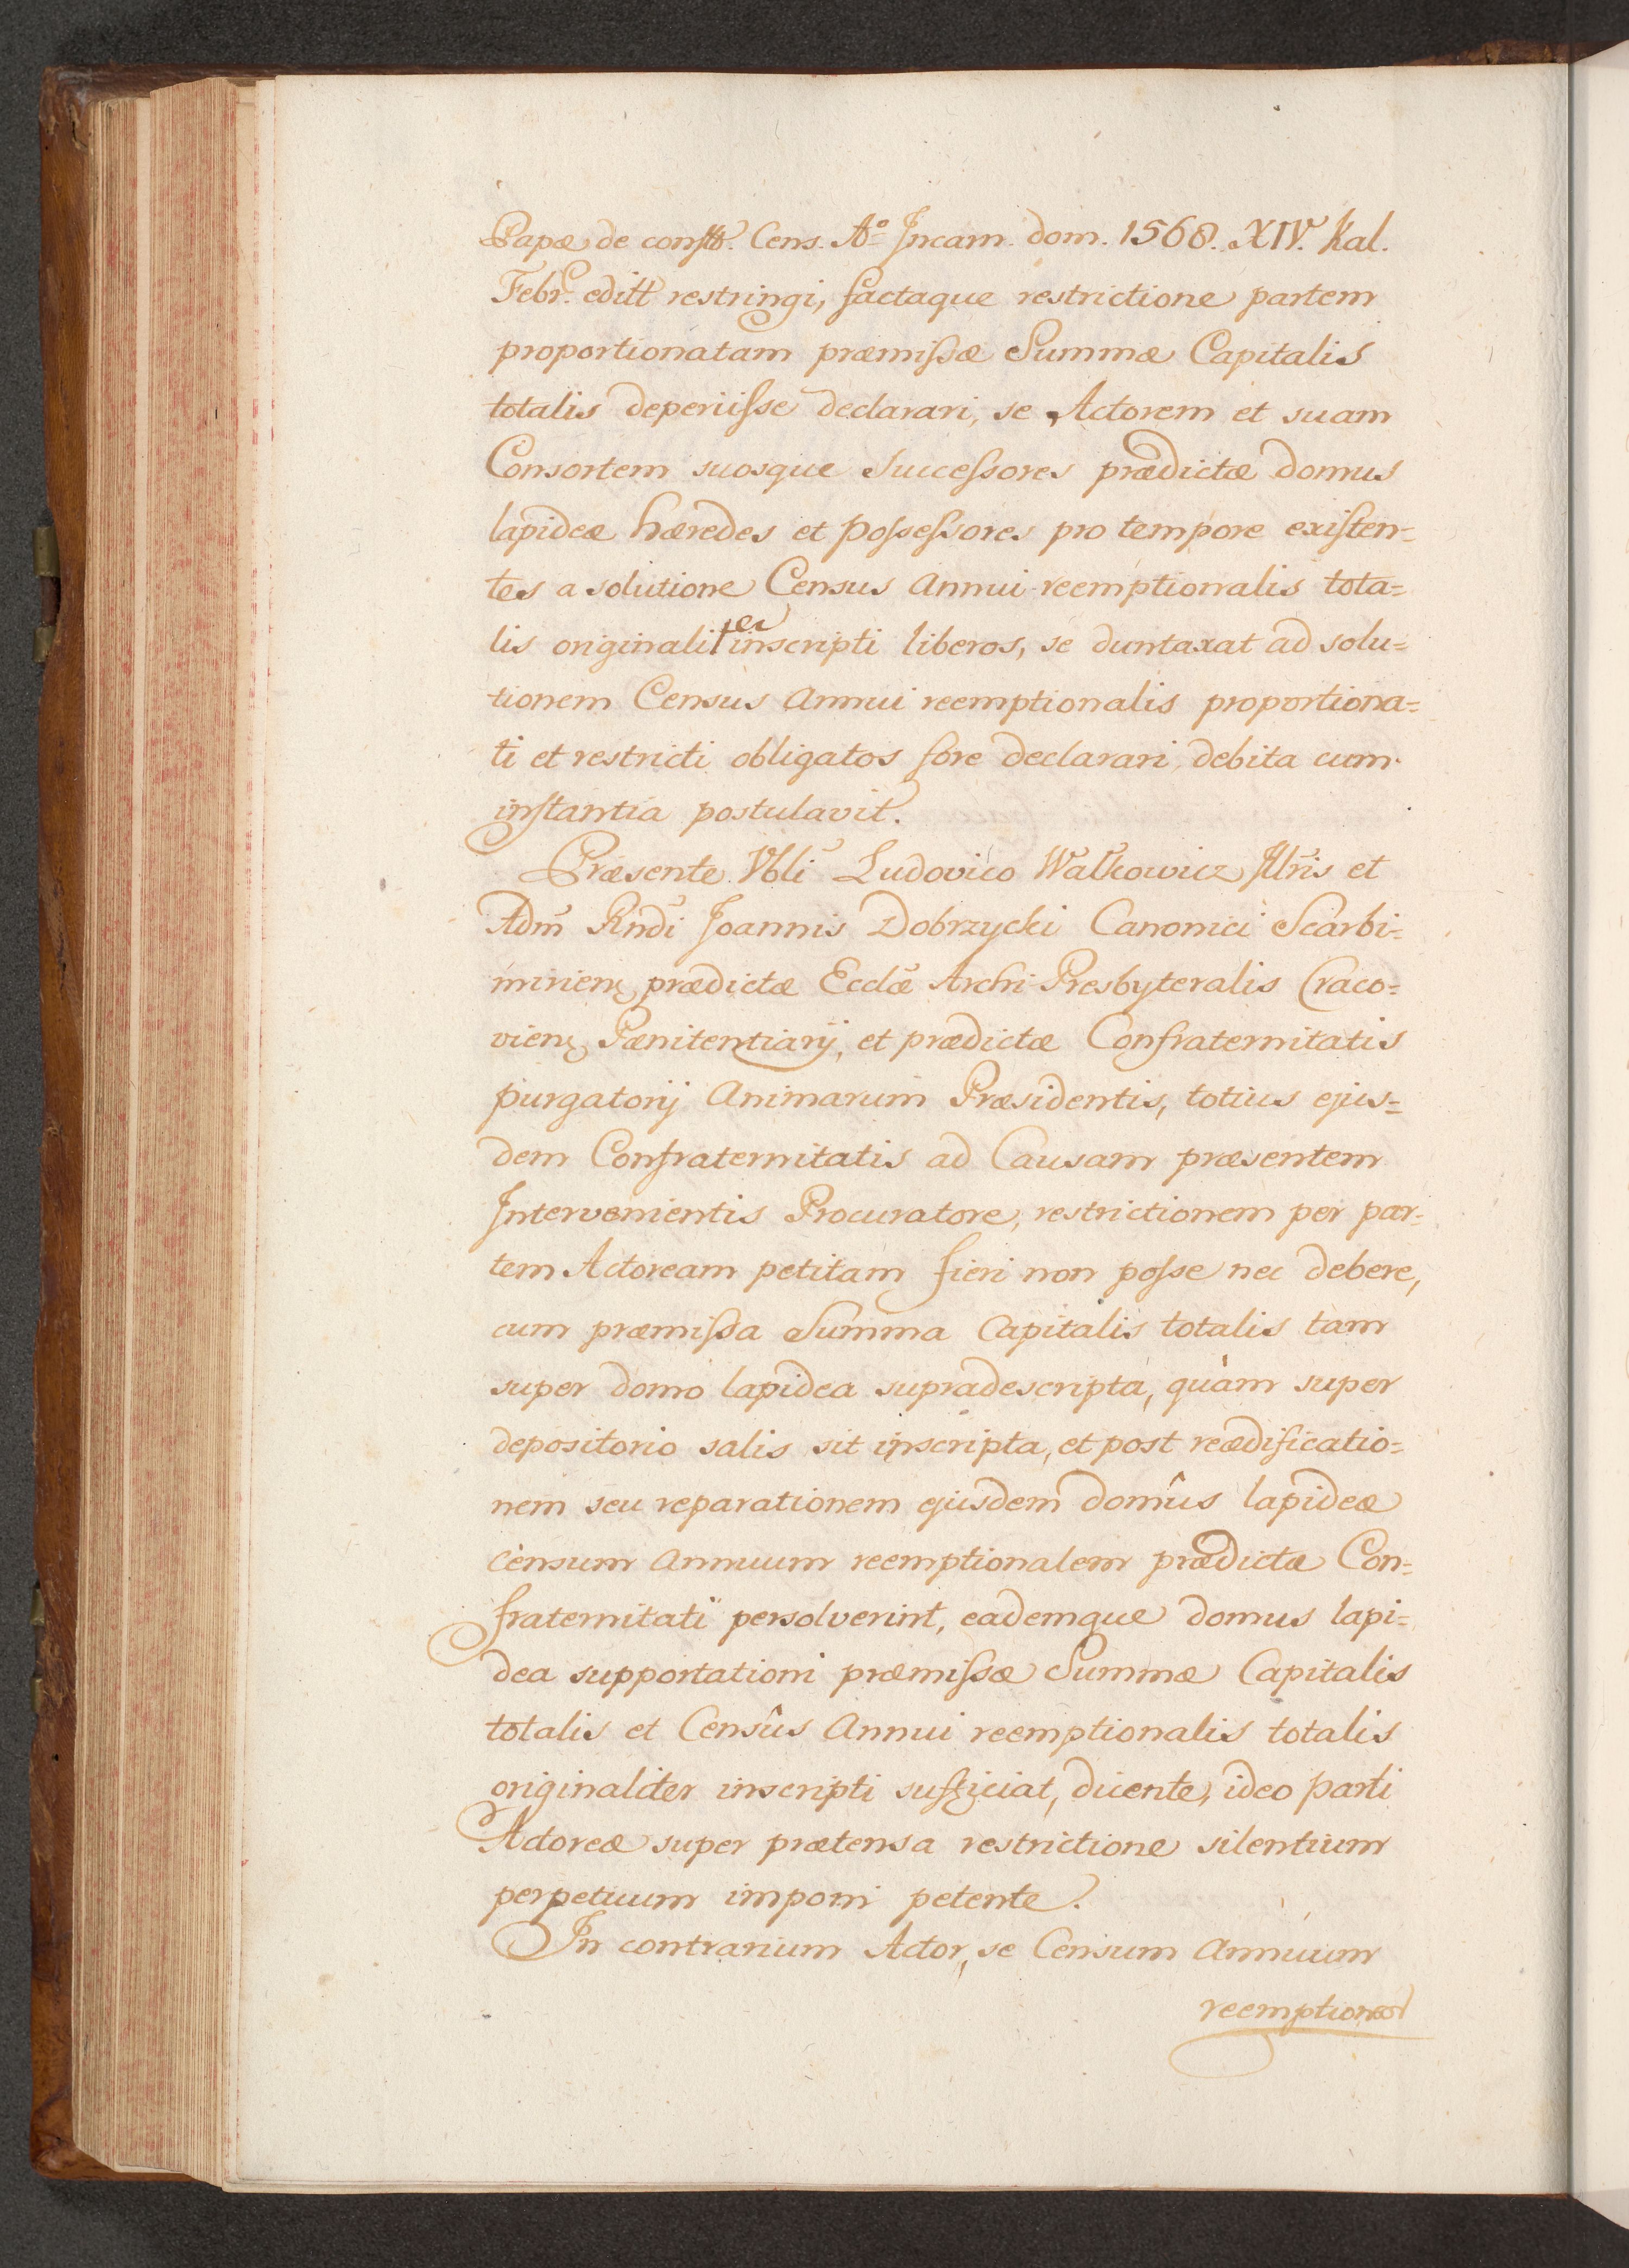 Papæ de constt. Cens. Aº Incarn. dom. 1568. XIV. Kal.
Febr. editt restringi, factaque restrictione partem
proportionatam præmissæ Summæ Capitalis
totalis deperiisse declarari, se Actorem et suam
Consortem suosque Successores prædictæ domus
lapideæ hæredes et possessores pro tempore existen=
tes a solutione Census Annui reemptionalis tota=
lis originaliter inscripti liberos, se duntaxat ad solu=
tionem Census Annui reemptionalis proportiona=
ti et restricti obligatos fore declarari, debita cum
instantia postulavit.
Præsente Nbli Ludovico Walkowicz Illris et
Adm̃ Rndi Joannis Dobrzycki Canonici Scarbi=
mirien, prædictæ Ecclæ Archi-Presbyteralis Craco=
vien, Pænitentiarij, et prædictæ Confraternitatis
purgatorij Animarum Præsidentis, totius ejus=
dem Confraternitatis ad Causam præsentem
Intervenientis Procuratore, restrictionem per par=
tem Actoream petitam fieri non posse nec debere,
cum præmissa Summa Capitalis totalis tam
super domo lapidea supradescripta, quàm super
depositorio salis sit inscripta, et post reædificatio=
nem seu reparationem ejusdem domûs lapideæ
censum annuum reemptionalem prædictæ Con=
fraternitati persolverint, eademque domus lapi=
dea supportationi præmissæ Summæ Capitalis
totalis et Censûs Annui reemptionalis totalis
originaliter inscripti sufficiat, dicente, ideo parti
Actoreæ super prætensa restrictione silentium
perpetuum imponi petente.
In contrarium Actor, se Censum Annuum